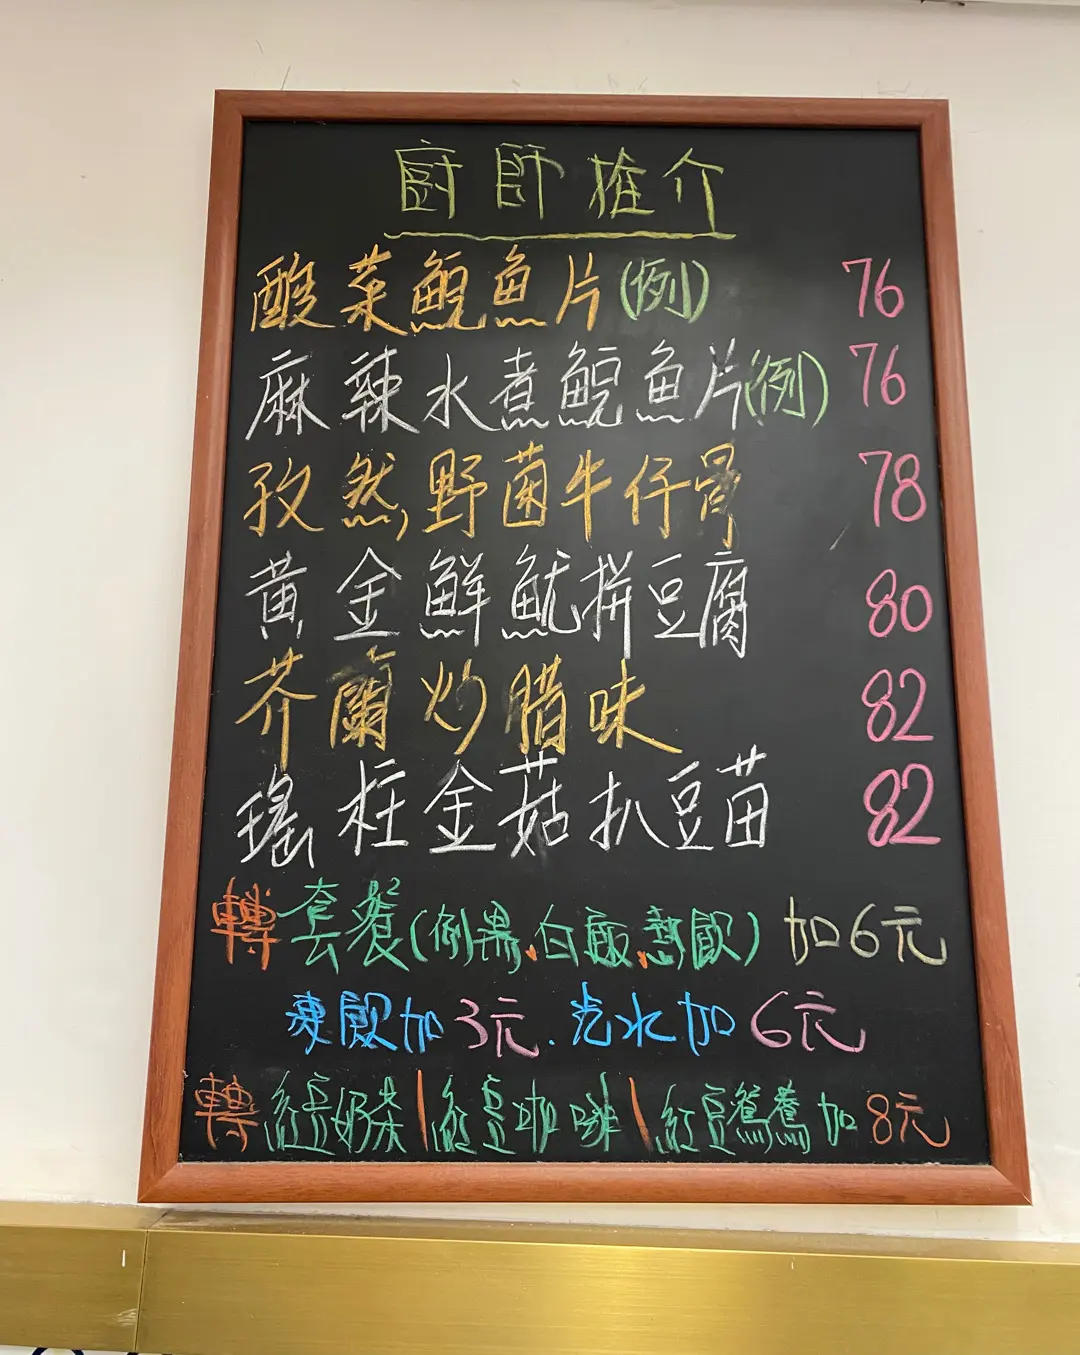 廚師推介
酸菜鯇魚片(例) 76
麻辣水煮鯇魚片(例) 76
孜然,野菌牛仔骨 78
黃金鮮魷拼豆腐 80
芥蘭炒腊味 82
瑤柱金菇扒豆苗 82
轉套餐(例湯.白飯.熱飲) 加6元
凍飲加3元.汽水加6元
轉紅豆奶茶|紅豆咖啡|紅豆鴛鴦加8元